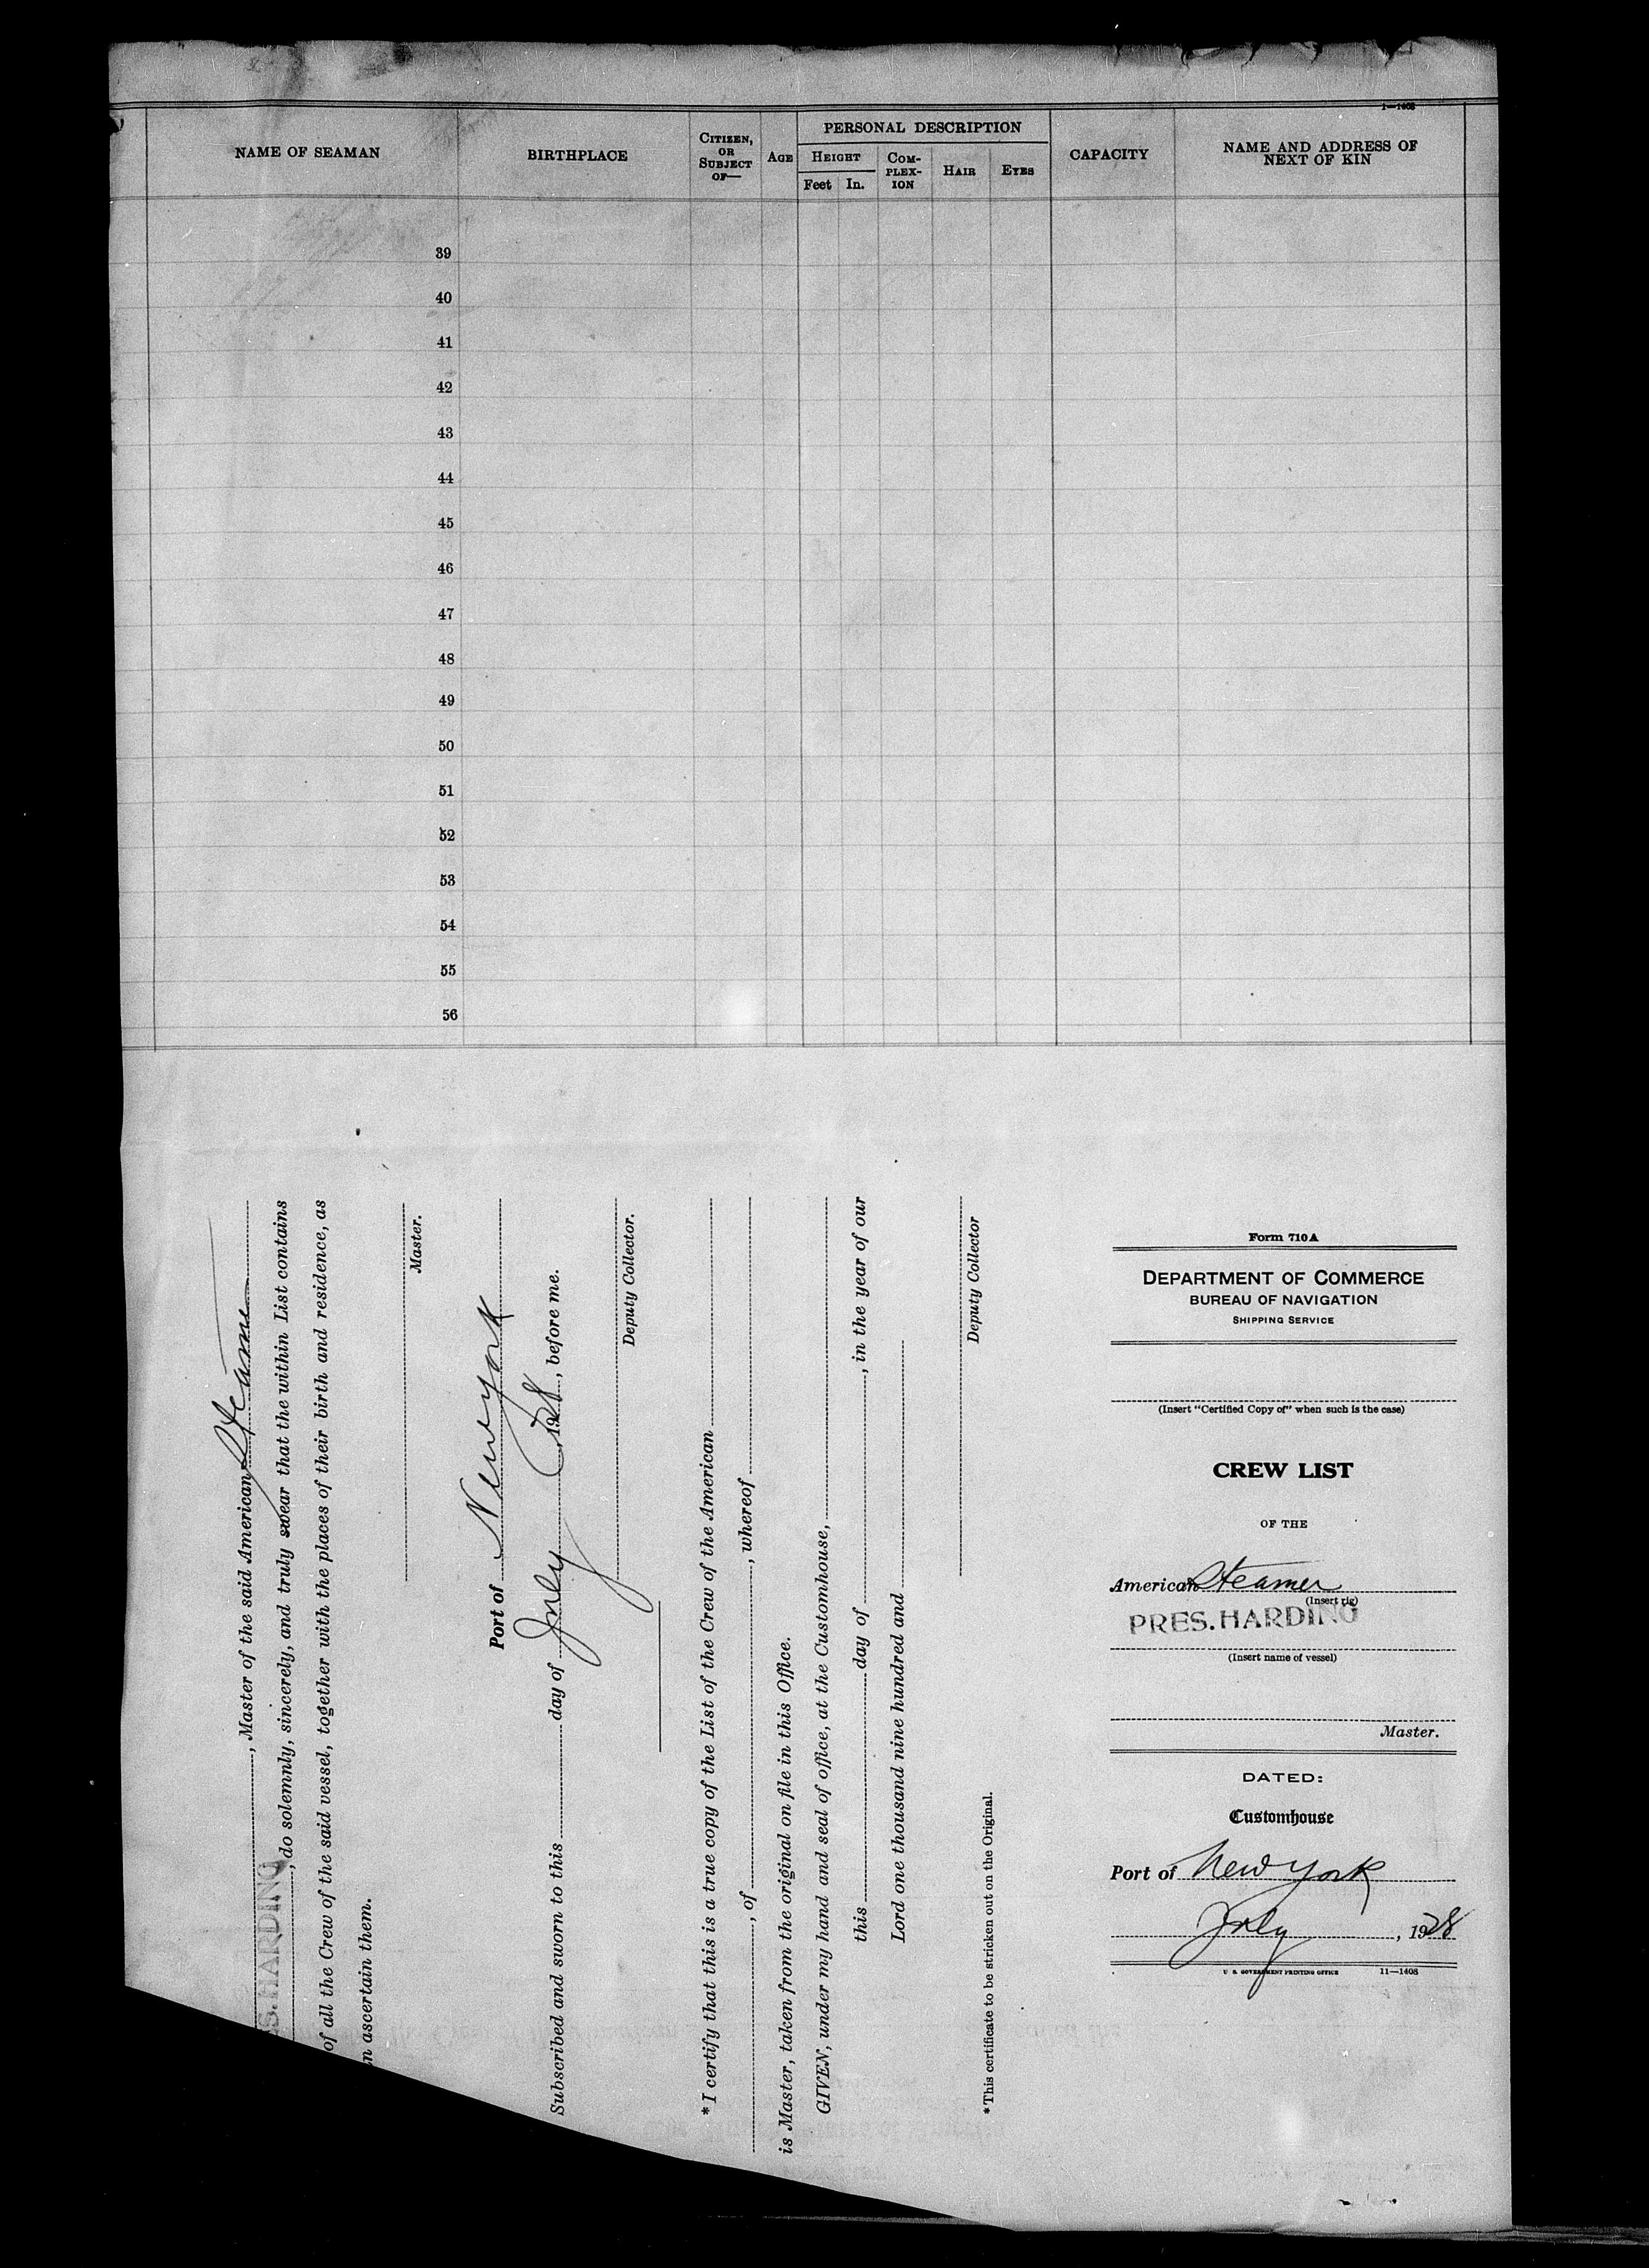 1—1408
NAME OF SEAMAN
BIRTHPLACE
CITIZEN, OR SUBJECT OF—
AGE
PERSONAL DESCRIPTION
HEIGHT
Feet In.
COM-PLEX-ION
HAIR
EYES
CAPACITY
NAME AND ADDRESS OF
NEXT OF KIN
39
40
41
42
43
44
45
46
47
48
49
50
51
52
53
54
55
56
, Master of the said American Steamer
S. HARDING, do solemnly, sincerely, and truly swear that the within List contains
of all the Crew of the said vessel, together with the places of their birth and residence, as
n ascertain them.
Master.
Port of New york
Subscribed and sworn to this day of July, 1928, before me.
Deputy Collector.
*I certify that this is a true copy of the List of the Crew of the American
, of , whereof
is Master, taken from the original on file in this Office.
GIVEN, under my hand and seal of office, at the Customhouse,
this day of , in the year of our
Lord one thousand nine hundred and
Deputy Collector
*This certificate to be stricken out on the Original.
Form 710A
DEPARTMENT OF COMMERCE
BUREAU OF NAVIGATION
SHIPPING SERVICE
(Insert "Certified Copy of" when such is the case)
CREW LIST
OF THE
American Steamer
(Insert rig)
PRES. HARDING
(Insert name of vessel)
Master.
DATED:
Customhouse
Port of New York
July, 1928
U. S. GOVERNMENT PRINTING OFFICE 11—1408